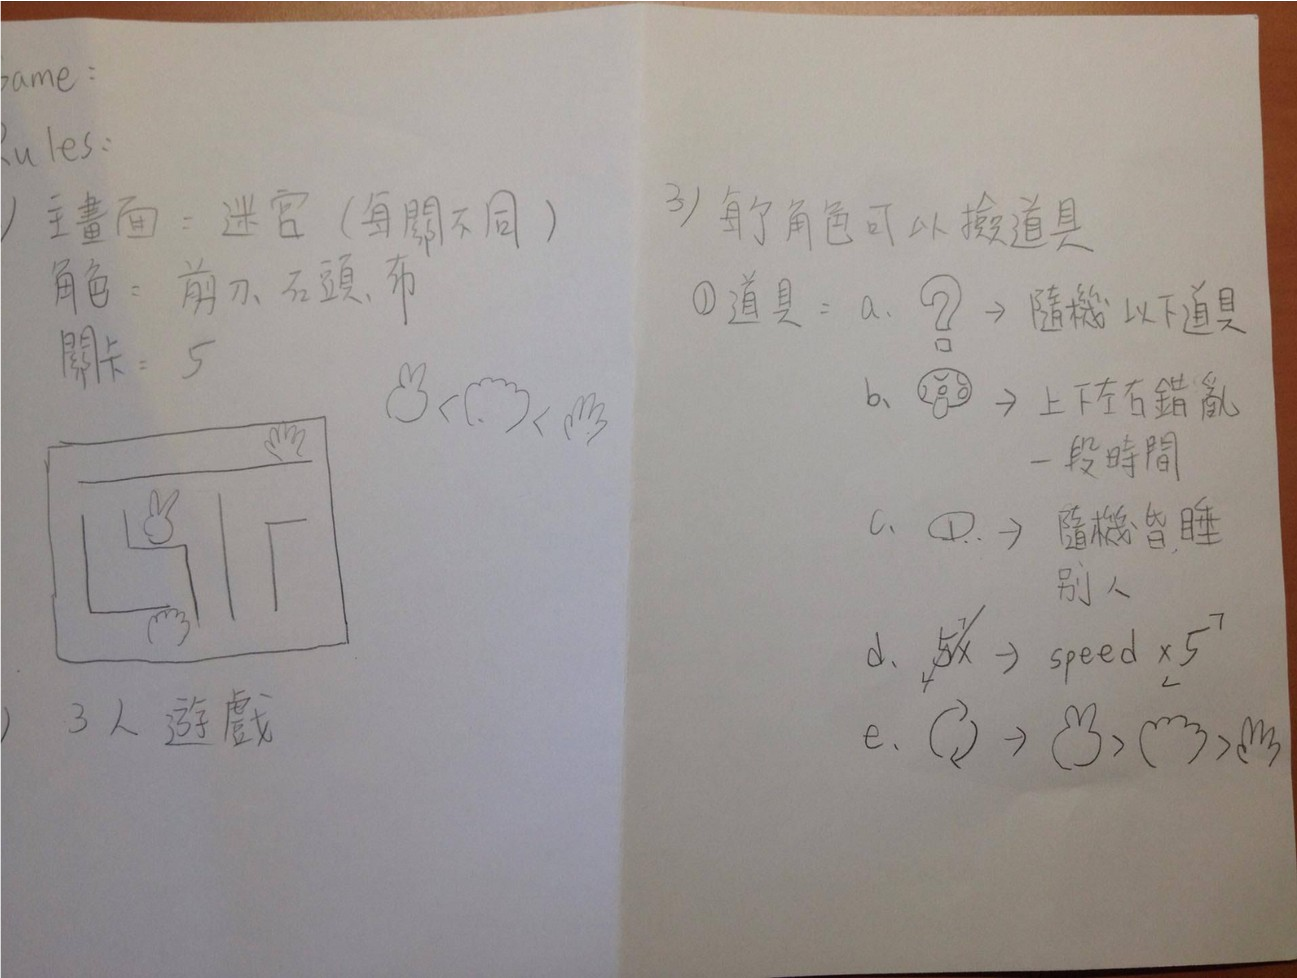 Game:
Rules:
) 主畫面: 迷宮 (每關不同)
角色: 剪刀、石頭、布
關卡: 5
< <
) 3人遊戲
3) 每个角色可以撿道具
① 道具: a. ? → 隨機以下道具
b. → 上下左右錯亂
一段時間
c. → 隨機皆睡
別人
d. 5x → speed x 5
e. → > >